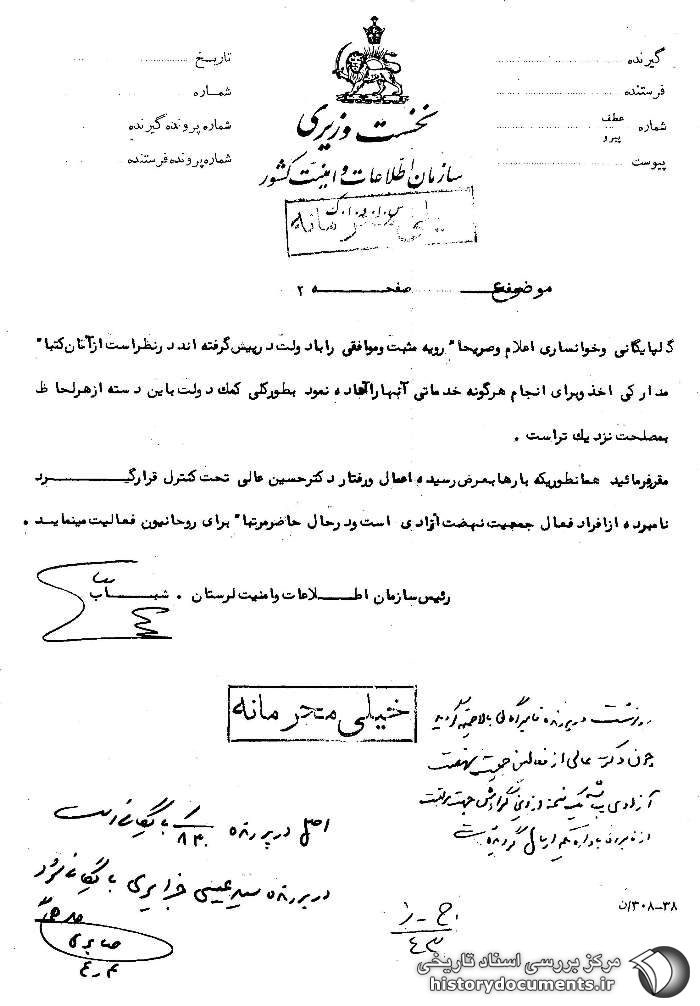 گیرنده
فرستنده
شماره
عطف
پیرو
پیوست
تاریخ
شماره
شماره پرونده گیرنده
شماره پرونده فرستنده
نخست وزیری
سازمان اطلاعات و امنیت کشور
موضوع صفحه ۲
گلپایگانی وخوانساری اعلام وصریحا" رویه مثبت وموافقی رابا دولت درپیش گرفته اند درنظراست ازآنان کتبا"
مدارکی اخذ وبرای انجام هرگونه خدماتی آنهاراآماده نمود بطورکلی کمک دولت باین دسته ازهرلحاظ
بمصلحت نزدیک تراست .
مقرفرمائید همانطوریکه بارها بعرض رسیده اعمال ورفتار دکترحسین عالی تحت کنترل قرارگیرد
نامبرده ازافراد فعال جمعیت نهضت آزادی است ودرحال حاضرمرتبا" برای روحانیون فعالیت مینماید .
رئیس سازمان اطلاعات وامنیت لرستان . شهاب
خیلی محرمانه
رونوشت در پرونده
چون دکتر عالی از فعالین جمعیت نهضت
آزادی
اصل در پرونده ۸۴۰ بایگانی است
در پرونده سید عیسی جزایری بایگانی شود
صابری
۴ ر ۴
۴۳
۳۸-۳۰۸/ن
مرکز بررسی اسناد تاریخی
historydocuments.ir